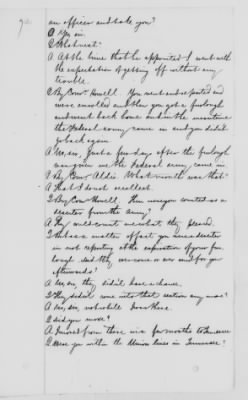 an officer and take you?
A Yes, sir.
Q What next?
A At the time that he appointed I went with
the expectation of getting off without any
trouble.
Q By Com'r Howell. You went and reported and
were enrolled and then you got a furlough
and went back home and in the meantime
the Federal army came in and you didn't
go back again
A No, sir, just a few days after the furlough
was given me the Federal army came in.
Q By Com'r Aldis. What month was that?
A That I do not recollect.
Q By Com'r Howell. Then were you counted as a
deserter from the army?
A They could count me what they pleased.
Q It was a matter of fact you were a deserter
in not reporting at the expiration of your fur-
lough. Did they ever come or send for you
afterwards?
A No, sir, they didn't have a chance.
Q They did not come into that section any more?
A No, sir, not while I was there.
Q Did you move?
A I moved from there in a few months to Tennessee
Q Were you within the Union lines in Tennessee?